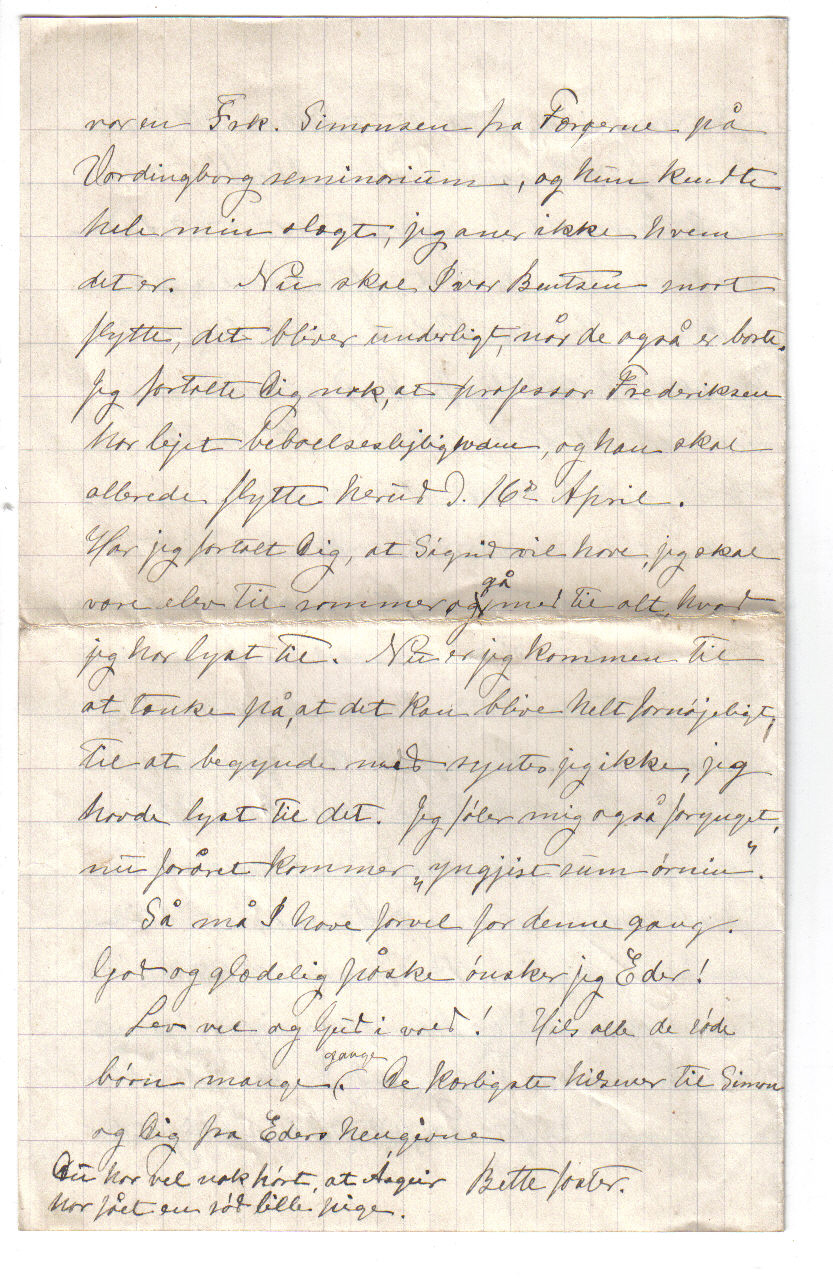 var en Frk. Simonsen fra Færøerne på
Vordingborg seminarium, og hun kendte
hele min slægt, jeg aner ikke hvem
det er. Nu skal Ivar Bentsen snart
flytte, det bliver underligt, når de også er borte.
Jeg fortalte Dig nok, at professor Frederiksen
har lejet beboelseslejligheden, og han skal
allerede flytte herud d. 16de April.
Har jeg fortalt Dig, at Sigrid vil have, jeg skal
være elev til sommer og gå med til alt, hvad
jeg har lyst til. Nu er jeg kommen til
at tænke på, at det kan blive helt fornøjeligt,
til at begynde med syntes jeg ikke, jeg
havde lyst til det. Jeg føler mig også forynget,
nu foråret kommer „yngjist sum ørnin".
Så må I have farvel for denne gang.
God og glædelig påske ønsker jeg Eder!
Lev vel og Gud i vold! Hils alle de søde
børn mange gange. De kærligste hilsener til Simon
og Dig fra Eders hengivne
Bette faster.
Du har vel nok hørt, at Asgeir
har fået en sød lille pige.